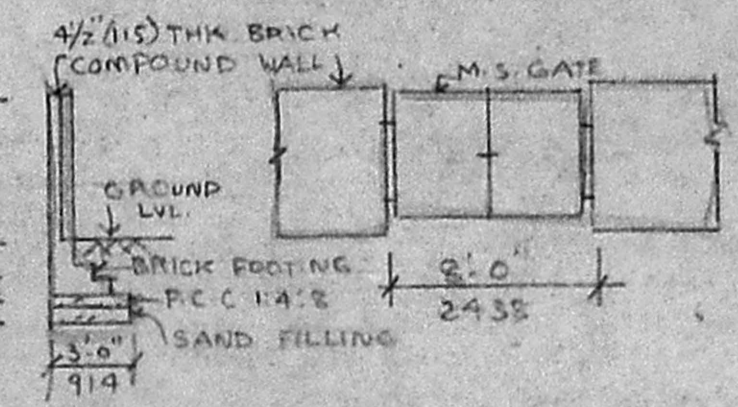 4½"(115) THK BRICK
COMPOUND WALL
M.S. GATE
GROUND
LVL.
BRICK FOOTING
P.C.C 1:4:8
SAND FILLING
3'-0"
914
8'-0"
2438